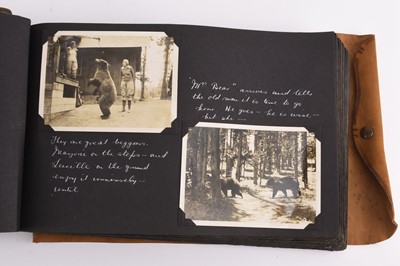 They are great beggars.
Marjorie on the steps - and
Lucille on the ground
enjoy it immensely -
until
"Mrs Bear" arrives and tells
the old man it is time to go
home. He goes - he is wise -
but she -